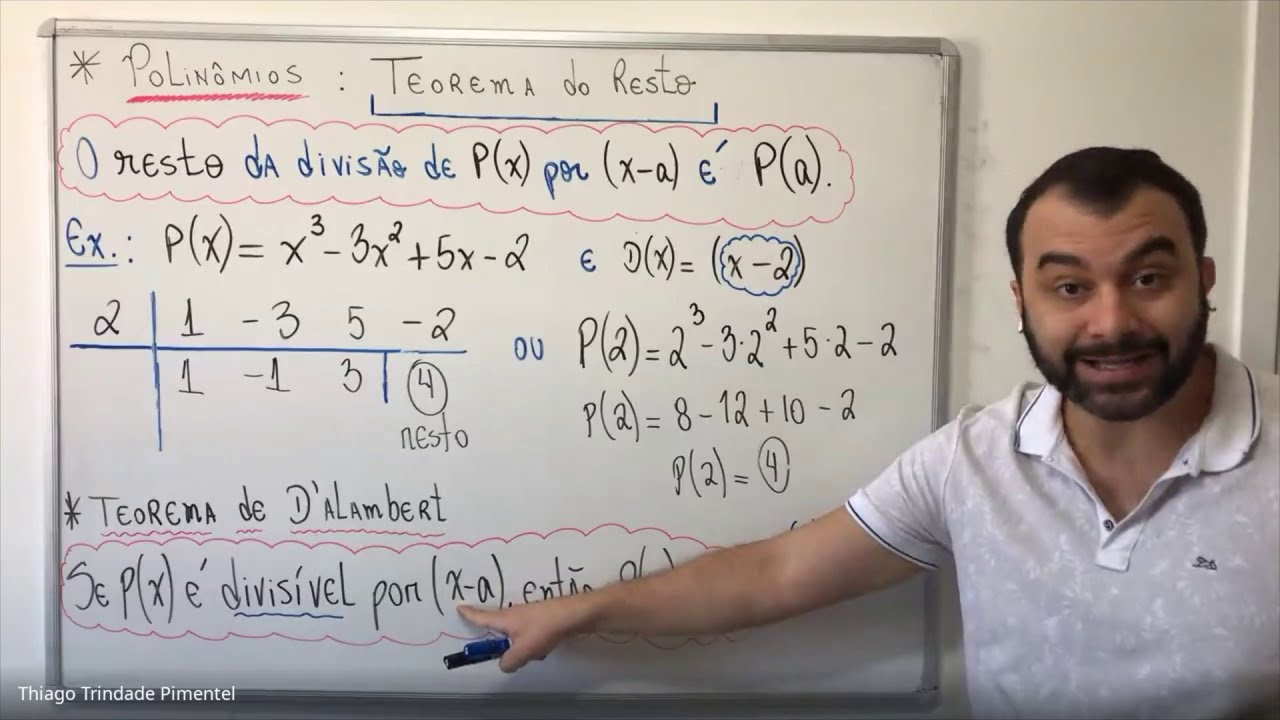 * POLINÔMIOS : TEOREMA do Resto
O resto da divisão de P(x) por (x-a) é P(a).
Ex.: P(x) = x³ - 3x² + 5x - 2 e D(x) = (x - 2)
2 1 -3 5 -2
1 -1 3 4
resto
ou P(2) = 2³ - 3·2² + 5·2 - 2
P(2) = 8 - 12 + 10 - 2
P(2) = 4
* TEOREMA de D'Alambert
Se P(x) é divisível por (x-a), então
Thiago Trindade Pimentel